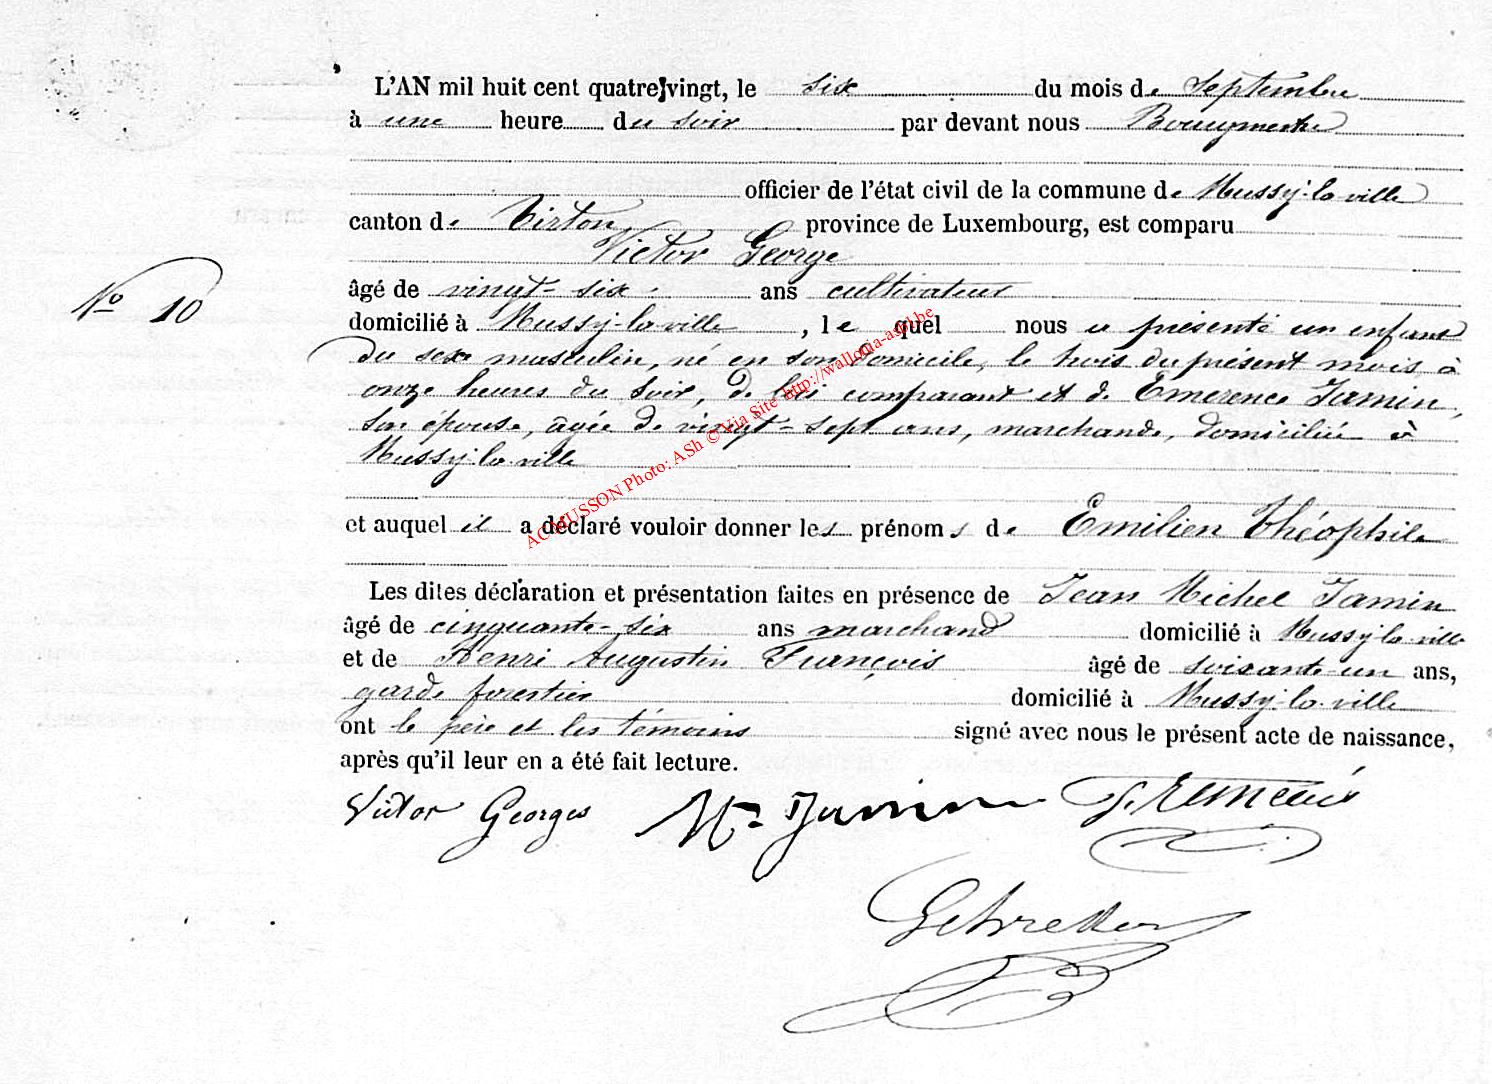 L'AN mil huit cent quatre-vingt, le six du mois de Septembre
à une heure du soir par devant nous Bourgmestre
officier de l'état civil de la commune de Mussy-la-ville
canton de Virton province de Luxembourg, est comparu
Victor George
âgé de vingt-six ans cultivateur
N° 10
domicilié à Mussy-la-ville, le quel nous a présenté un enfant
du sexe masculin, né en son domicile, le trois du présent mois à
onze heures du soir, de lui comparant et de Emerence Jamin,
son épouse, agée de vingt-sept ans, marchande, domiciliée à
Mussy-la-ville
et auquel il a déclaré vouloir donner les prénoms de Emilien Théophile
Les dites déclaration et présentation faites en présence de Jean Michel Jamin
âgé de cinquante-six ans marchand domicilié à Mussy-la-ville
et de Henri Augustin François âgé de soixante-un ans,
garde forestier domicilié à Mussy-la-ville
ont le père et les témoins signé avec nous le présent acte de naissance,
après qu'il leur en a été fait lecture.
Victor Georges Jamin
ACMUSSON Photo: ASh © Via Site http://wallonia-asbl.be